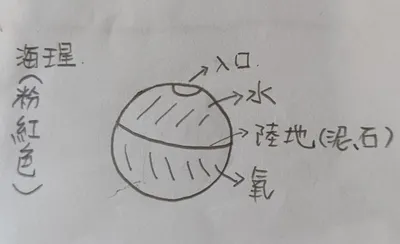 海王星
(粉紅色)
入口
水
陸地(泥、石)
氧